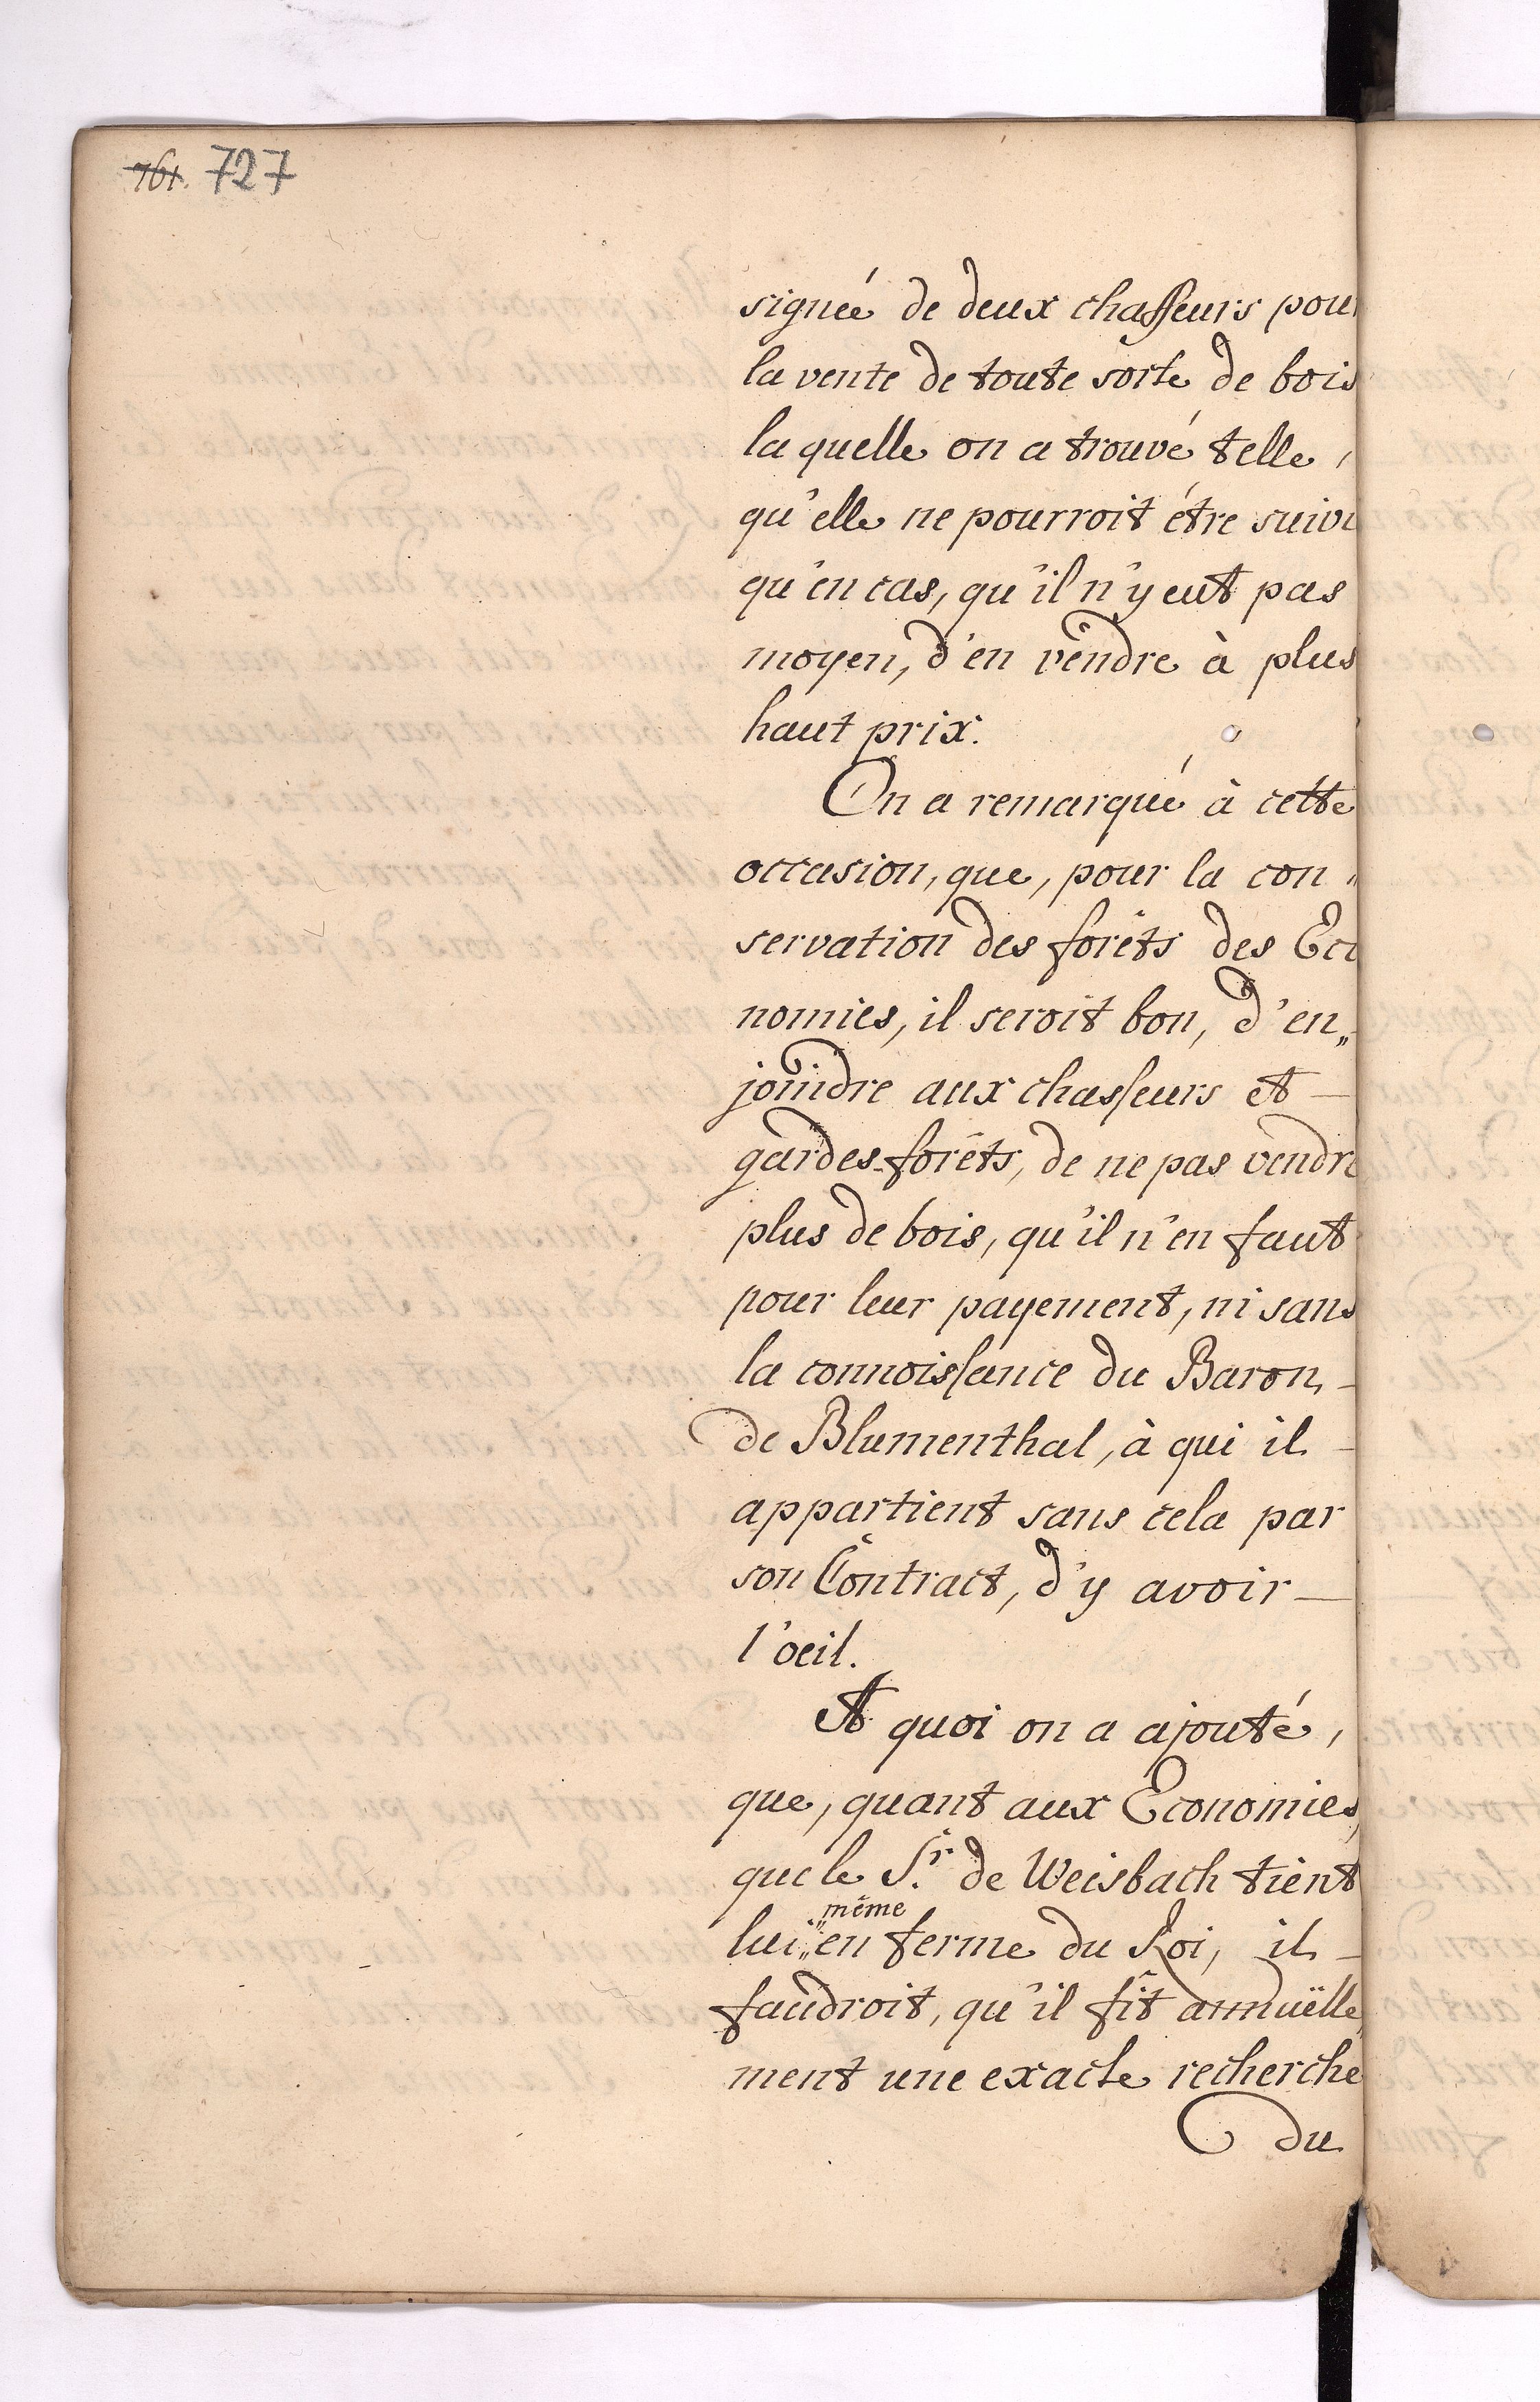 761. 727
signée de deux chasseurs pour
la vente de toute sorte de bois
la quelle on a trouvé telle,
qu'elle ne pourroit étre suivi
qu'en cas, qu'il n'y eut pas
moyen, d'en vendre à plus
haut prix.
On a remarqué à cette
occasion, que, pour la con„
servation des forêts des Eco
nomies, il seroit bon, d'en„
joindre aux chasseurs et
gardes-forêts, de ne pas vendre
plus de bois, qu'il n'en faut
pour leur payement, ni sans
la connoissance du Baron
de Blumenthal, à qui il
appartient sans cela par
son Contract, d'y avoir
l'oeil.
A quoi on a ajouté,
que, quant aux Economies,
que le Sr. de Weisbach tient
même
lui„ en ferme du Roi, il
faudroit, qu'il fît annuëlle„
ment une exacte recherche
du